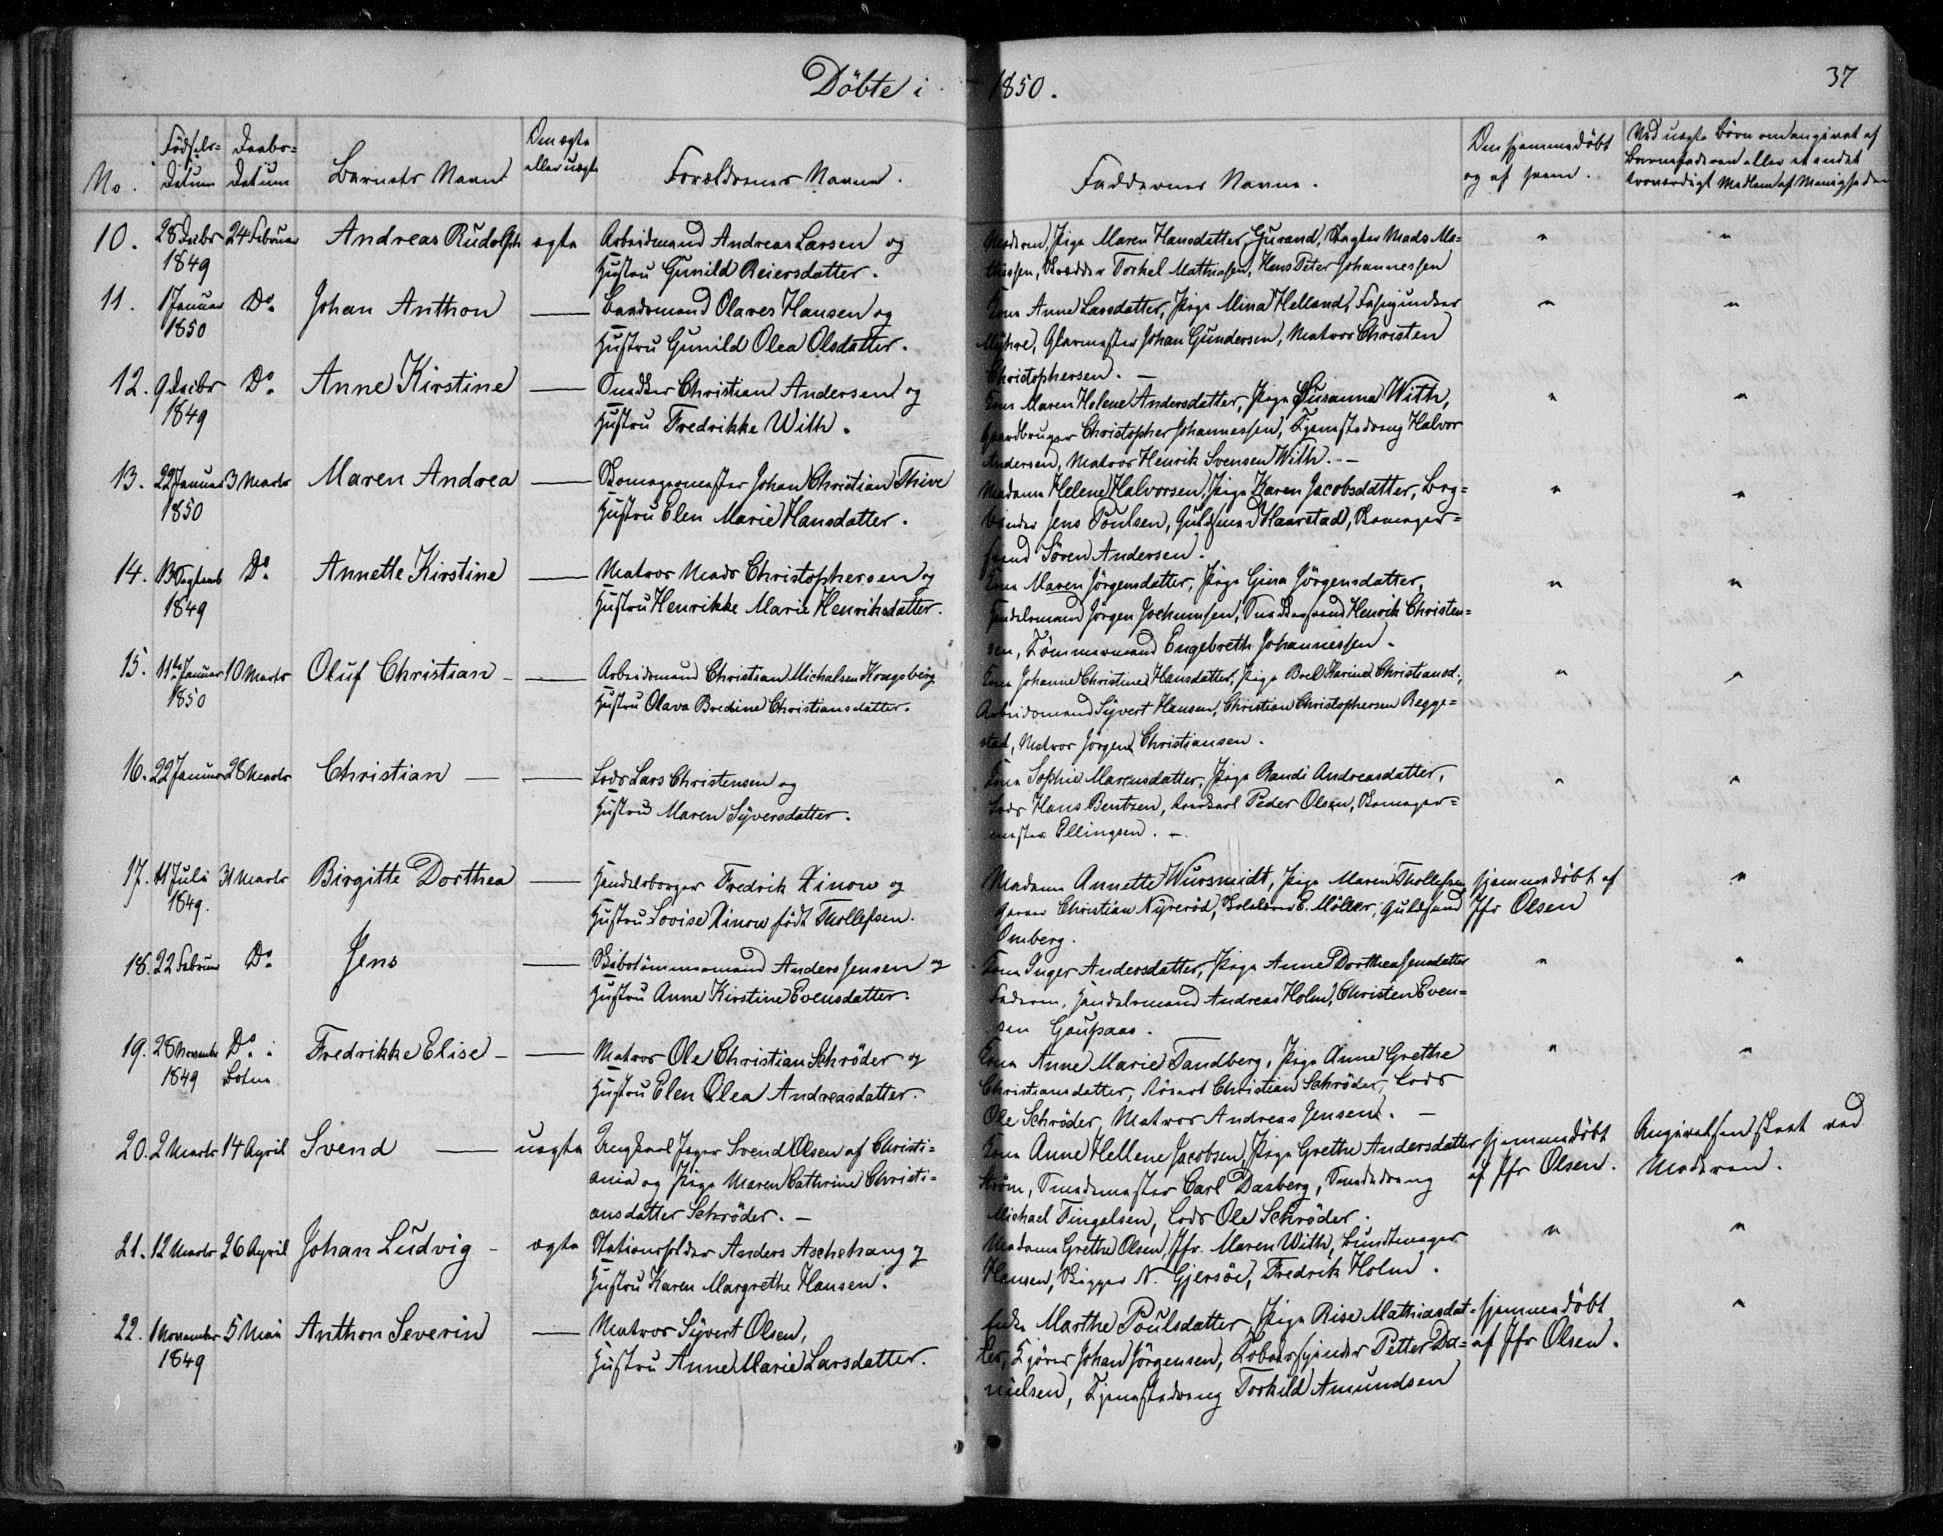 Döbte i 1850.
37
No.
Födsels-Datum
Daabs-Datum
Barnets Navn
Om ægte eller uægte
Forældrenes Navne.
Faddernes Navne.
Om hjemmedöbt og af hvem.
Ved uægte Börn om angivet af Barnefaderen eller et andet troværdigt Medlem af Menigheden
10. 28 Decbr 1849 24 Februar Andreas Rudolph ægte
Arbeidsmand Andreas Larsen og
Hustru Gunild Reiersdatter.
Moderen, Pige Maren Hansdatter Gurand, Slagter Mads Ma-
thiesen, Skrædder Torkel Mathiesen, Hans Peter Johannessen
11. 1 Januar 1850 Do. Johan Anthon
Baadsmand Olaves Hansen og
Hustru Gunild Olea Olsdatter.
Kone Anne Larsdatter, Pige Mina Helland,
Myhre, Glarmester Johan Gundersen, Matros Christen
Christophersen. —
12. 9 Decbr 1849 Do. Anne Kirstine
Snedker Christian Andersen og
Hustru Fredrikke With.
Kone Maren Helene Andersdatter, Pige Susanna With,
Gaardbruger Christopher Johannessen, Tjenestedreng Halvor
Andersen, Matros Henrik Svensen With. —
13. 22 Januar 1850 3 Marts Maren Andrea
Skomagermester Johan Christian Thive
Hustru Elen Marie Hansdatter.
Madame Helene Halvorsen, Pige Karen Jacobsdatter, Bog-
binder Jens Poulsen, Guldsmed Haarstad, Skomager-
svend Sören Andersen.
14. 13 Septemb 1849 Do. Annette Kirstine
Matros Mads Christophersen og
Hustru Henrikke Marie Henriksdatter.
Kone Maren Jörgensdatter, Pige Gina Jörgensdatter,
Handelsmand Jörgen Jochumsen, Snedkersvend Henrik Christen-
sen, Tömmermand Engebreth Johannessen.
15. 11te Januar 1850 10 Marts Oluf Christian
Arbeidsmand Christian Michalsen Kongsberg
Hustru Olava Bredine Christiansdatter.
Kone Johanne Christine Hansdatter, Pige Boel Karine Christiansd.,
Arbeidsmand Syvert Hansen, Christian Christophersen Regge-
stad, Matros Jörgen Christiansen.
16. 22 Januar 28 Marts Christian
Lods Lars Christensen og
Hustru Maren Syversdatter.
Kone Sophie Marcusdatter, Pige Randi Andreasdatter,
Lods Hans Bentsen, Peder Olsen, Skomager-
mester Ellingsen. —
17. 11 Juli 1849. 31 Marts Birgitte Dorthea
Handelsborger Fredrik Xinow og
Hustru Lovise Xinow födt Thollefsen.
Madame Annette Wursmidt, Pige Maren Thollefsen
Garver Christian Nyreröd, E. Möller, Guldsmed
Omberg.
hjemmedöbt af Jfr Olsen
18. 22 Februar Do. Jens
Skibstömmermand Anders Jensen og
Hustru Anne Kirstine Evensdatter.
Kone Inger Andersdatter, Pige Anne Dorthea Jensdatter
Faderen, Handelsmand Andreas Holm, Christen Even-
sen Goupaas.
19. 28 November 1849 Do. i Botne Fredrikke Elise
Matros Ole Christian Schröder og
Hustru Elen Olea Andreasdatter.
Kone Anne Marie Tandberg, Pige Anne Grethe
Christiansdatter, Christian Schröder, Lods
Ole Schröder, Matros Andreas Jensen. —
20. 2 Marts 14 April Svend uægte
Ungkarl Jæger Svend Olsen af Christi-
ania og Pige Maren Cathrine Christi-
ansdatter Schröder. —
Kone Anne Hellene Jacobsen, Pige Grethe Andersdatter
Ström, Smedemester Carl Dasberg, Smededreng
Michael Tingelsen, Lods Ole Schröder.
hjemmedöbt af Jfr Olsen.
Angivelsen skeet ved Moderen.
21. 12 Marts 26 April Johan Ludvig ægte
Stationsholder Anders Aschehaug og
Hustru Karen Margrethe Hansen.
Madame Grethe Olsen, Jfr. Maren With, Buntmager
Hansen, Skipper N. Gjersöe, Fredrik Holm.
22. 1 November 1849 5 Mai Anthon Severin
Matros Syvert Olsen,
Hustru Anne Marie Larsdatter.
Enke Marthe Poulsdatter, Pige Rise Mathiasdat-
ter, Kjörer Johan Jörgensen, Tobaksspinder Petter Da-
nielsen, Tjenestedreng Torkild Amundsen
hjemmedöbt af Jfr Olsen.